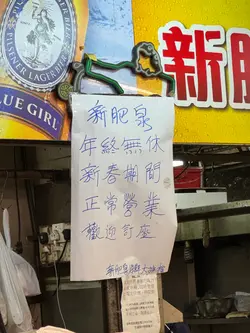 PILSNER LAGER BEER
BLUE GIRL
新肥
新肥泉
年終無休
新春期間
正常營業
歡迎訂座